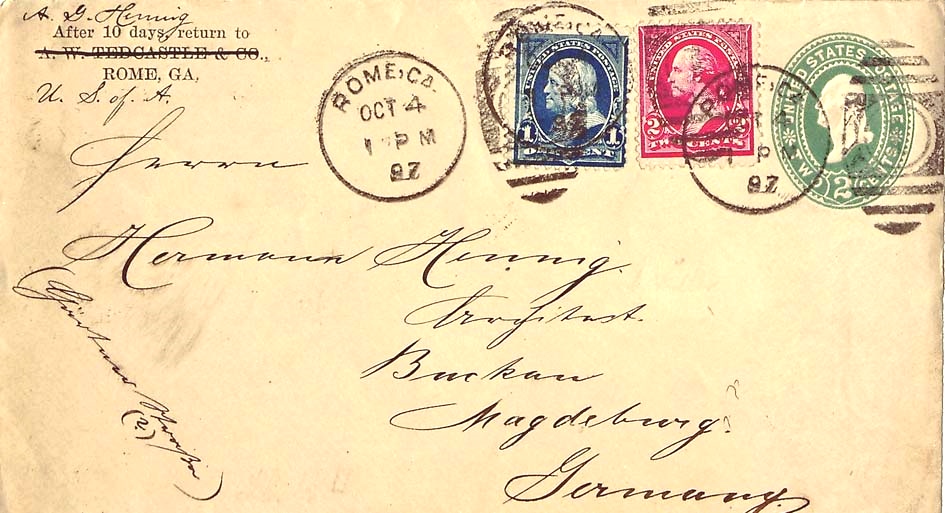 A. G. Hennig
After 10 days, return to
A. W. TEDCASTLE & CO.,
ROME, GA.
U. S. of A.
ROME, GA.
OCT 4
1 PM
97
UNITED STATES OF AMERICA
1 1
ONE CENT
UNITED STATES OF AMERICA
2 2
TWO CENTS
UNITED STATES POSTAGE
TWO 2 CENTS
ROME, GA.
OCT
P
97
Herrn
Hermann Hennig.
Architect.
Buckau
Magdeburg.
Germany.
(Gärtner Straße
(2.))